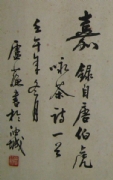 嘉
錄自唐伯虎
咏茶詩一首
壬午年冬月
書於
城